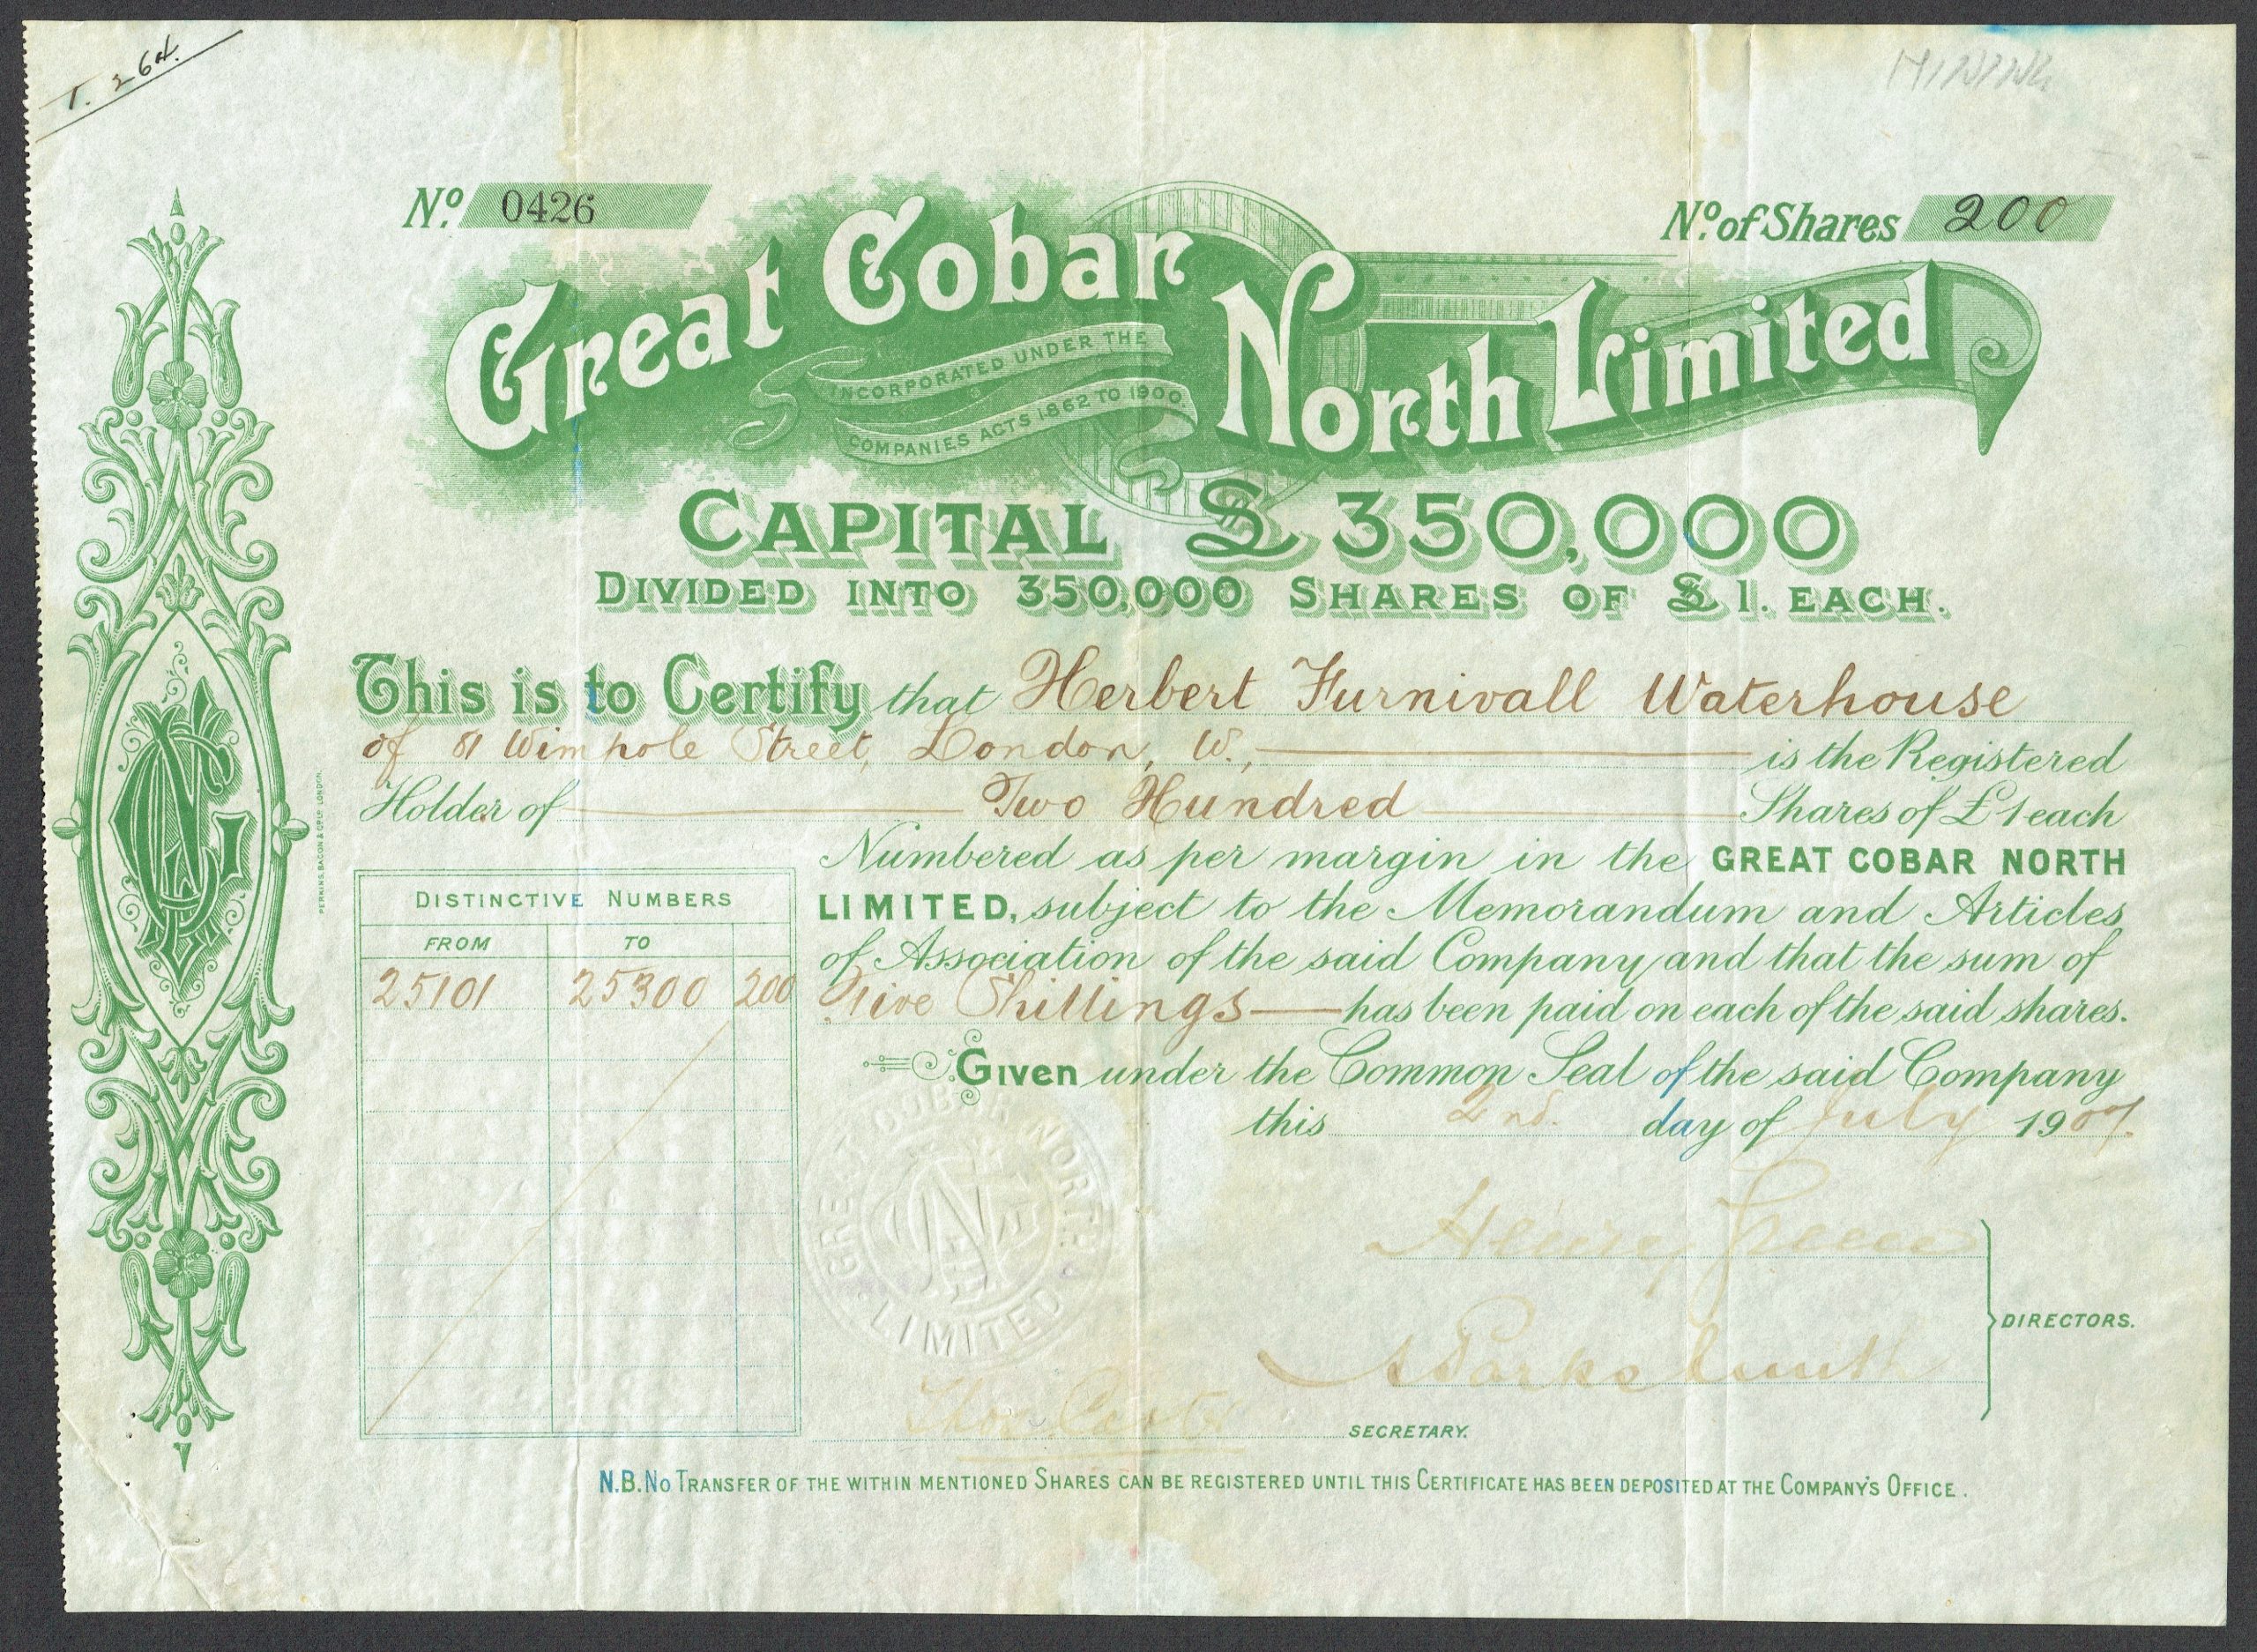 T. 264.
MINING
No. 0426
No. of Shares 200
Great Cobar North Limited
INCORPORATED UNDER THE
COMPANIES ACTS 1862 TO 1900.
CAPITAL £ 350,000
DIVIDED INTO 350,000 SHARES OF £1. EACH.
This is to Certify that Herbert Furnivall Waterhouse
of 81 Wimpole Street, London, W., is the Registered
Holder of Two Hundred Shares of £1 each
Numbered as per margin in the GREAT COBAR NORTH
LIMITED, subject to the Memorandum and Articles
of Association of the said Company and that the sum of
Five Shillings has been paid on each of the said shares.
Given under the Common Seal of the said Company
this 2nd. day of July 1907.
DISTINCTIVE NUMBERS
FROM TO
25101 25300 200
PERKINS, BACON & CO LD LONDON.
GREAT COBAR NORTH LIMITED
Henry
DIRECTORS.
SECRETARY.
N.B. NO TRANSFER OF THE WITHIN MENTIONED SHARES CAN BE REGISTERED UNTIL THIS CERTIFICATE HAS BEEN DEPOSITED AT THE COMPANY'S OFFICE.